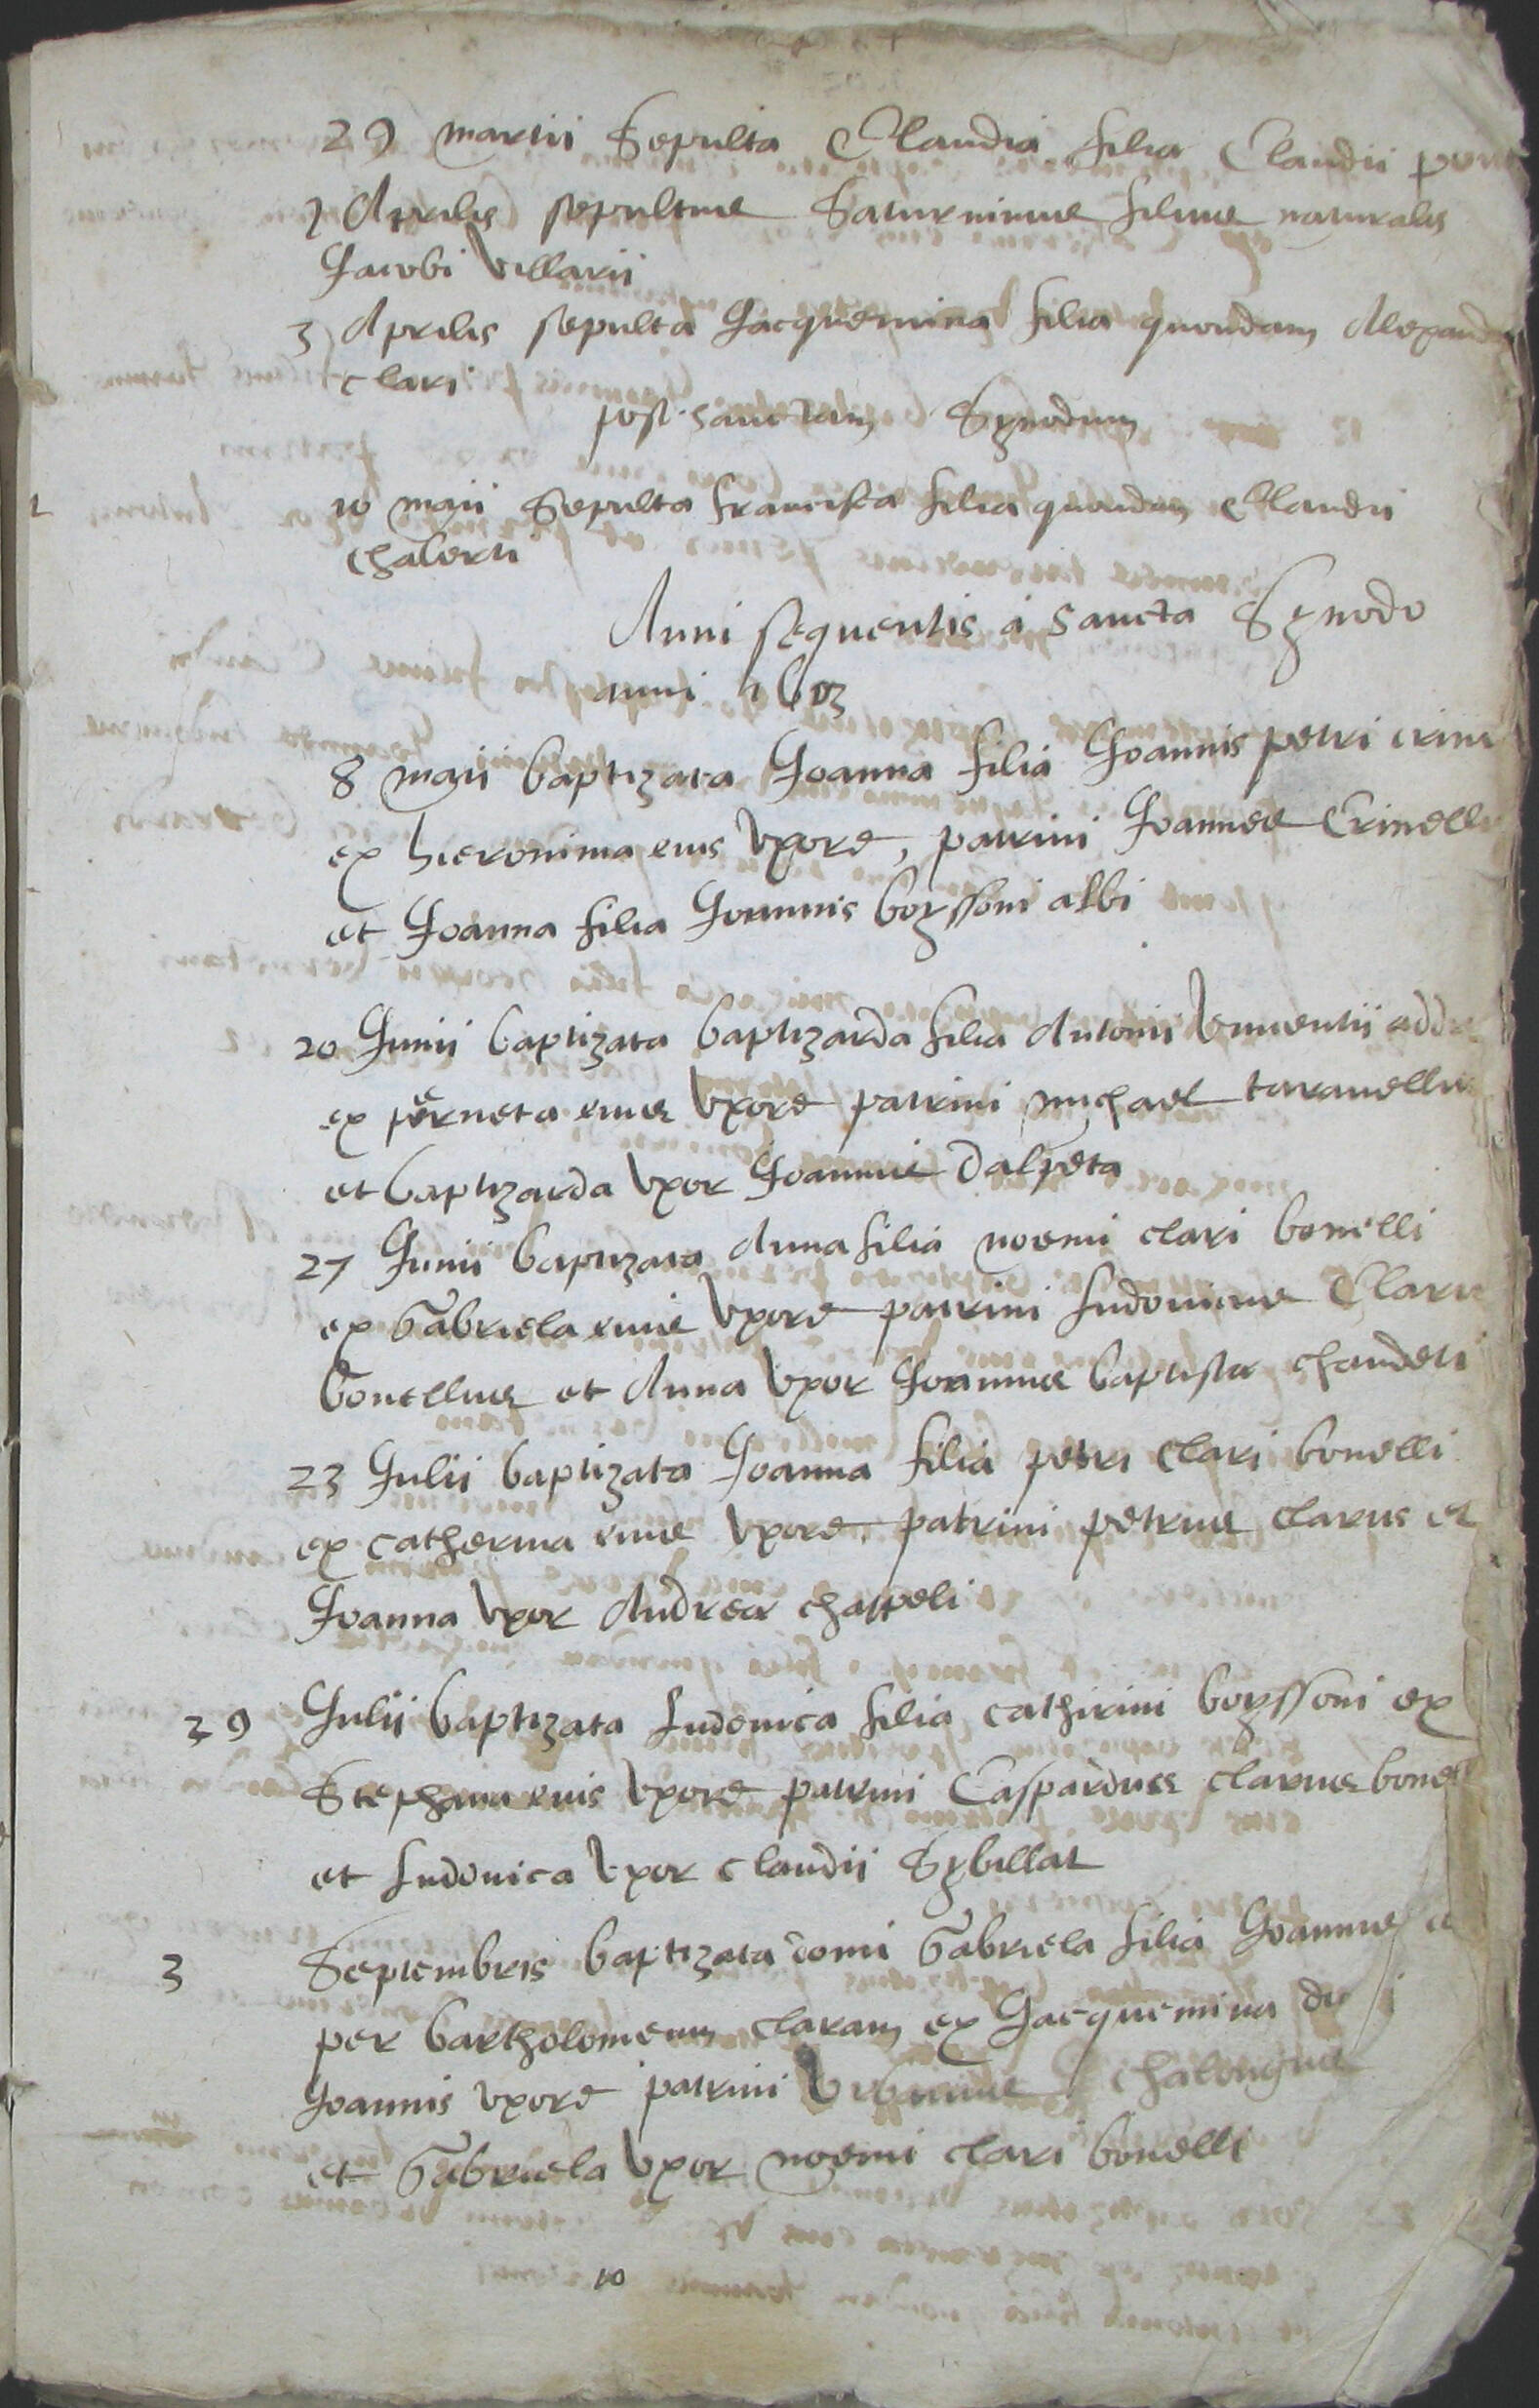 29 martii Sepulta Claudia filia Claudii
1 Aprilis sepultus Saturninus filius naturalis
Jacobi Villarii
3 Aprilis sepulta Jacquemina filia quondam
clari
post sanctam Synodum
10 maii Sepulta francisca filia quondam Claudii
chaberti
Anni sequentis a sancta Synodo
anni 1603
8 maii baptizata Joanna filia Joannis petri
ex hieronima eius Vxore, patrini Joannes
et Joanna filia Joannis boyssoni albi
20 Junii baptizata baptizarda filia Antonii Vincentii
ex perneta eius Vxore patrini michael
et baptizarda Vxor Joannis dalpeta
27 Junii baptizata Anna filia noemi clari bonelli
ex Gabriela eius Vxore patrini Ludovicus Clarus
bonellus et Anna Vxor Joannis baptistæ chaudeti
23 Julii baptizata Joanna filia petri clari bonelli
ex catherina eius Vxore, patrini petrus clarus et
Joanna Vxor Andreæ chappeli
29 Julii baptizata Ludovica filia cathirini boyssoni ex
Stephana eius Vxore patrini Caspardus clarus
et Ludovica Vxor claudii Sybillat
3 Septembris baptizata domi Gabriela filia Joannis
per bartholomeum claram ex Jacquemina
Joannis vxore patrini Urbanus
et Gabriela Vxor noemi clari bonelli
10